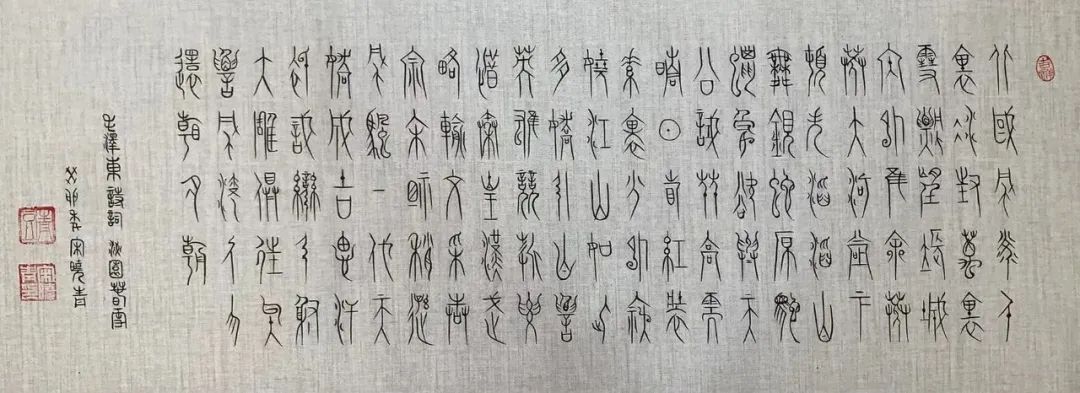 北國風光千
里冰封萬里
雪飄望長城
內外惟余莽
莽大河上下
頓失滔滔山
舞銀蛇原馳
蠟象欲與天
公試比高須
晴日看紅裝
素裹分外妖
嬈江山如此
多嬌引無數
英雄競折腰
惜秦皇漢武
略輸文采唐
宗宋祖稍遜
風騷一代天
驕成吉思汗
只識彎弓射
大雕俱往矣
數風流人物
還看今朝
毛澤東詩詞 沁園春雪
癸卯 宋曉青